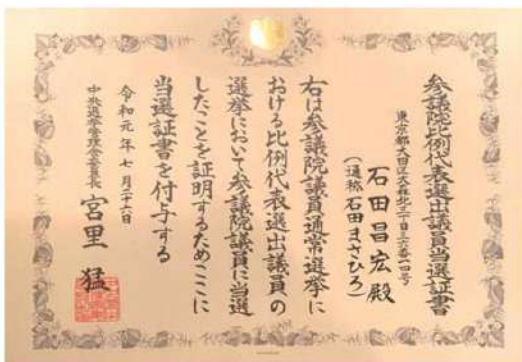 参議院比例代表選出議員当選証書
東京都大田区大森北二丁目三六番一四号
石田昌宏殿
(通称石田まさひろ)
右は参議院議員通常選挙に
おける比例代表選出議員の
選挙において参議院議員に当選
したことを証明するためここに
当選証書を付与する
令和元年七月二十六日
中央選挙管理会委員長 宮里 猛